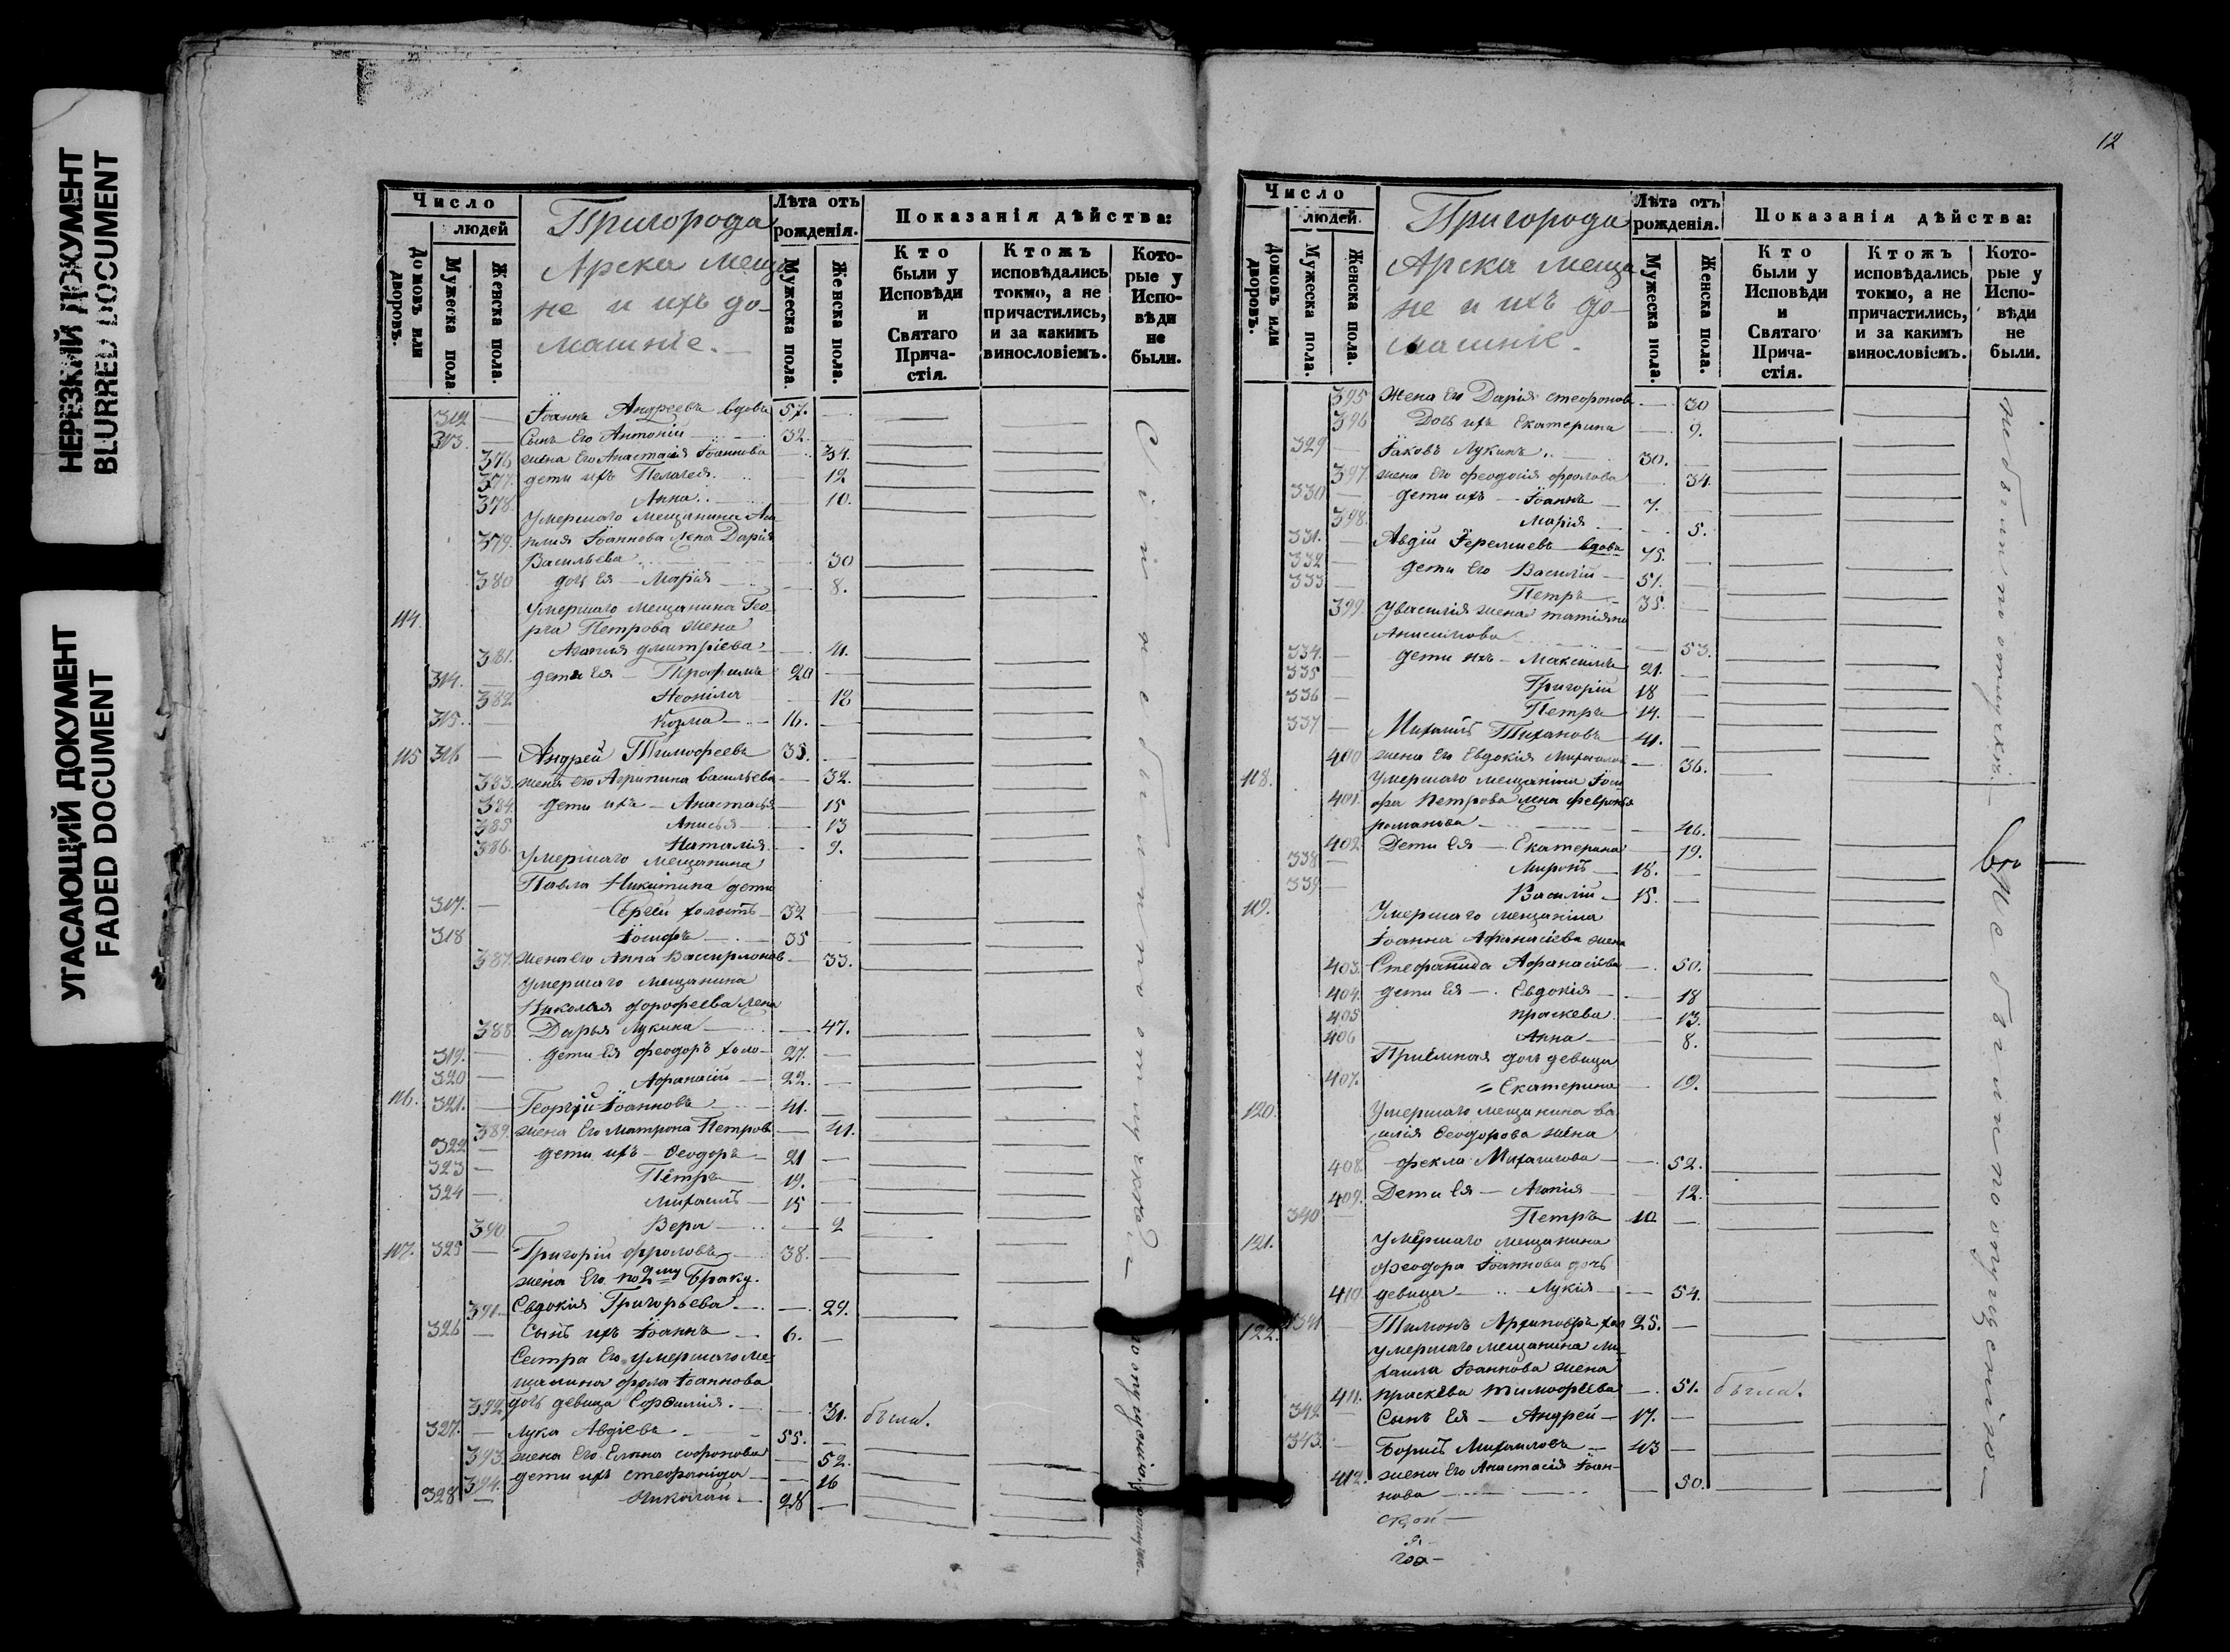 НЕРЕЗКИЙ ДОКУМЕНТ
BLURRED DOCUMENT
УГАСАЮЩИЙ ДОКУМЕНТ
FADED DOCUMENT
Число
людей
Домовъ или дворовъ.
Мужеска пола
Женска пола.
Пригорода
Арска меща
не и ихъ до-
машніе.
Лѣта отъ рожденія.
Мужеска пола.
Женска пола.
Показанія дѣйства:
Кто были у Исповѣди и Святаго Прича-стія.
Ктожъ исповѣдались токмо, а не причастились, и за какимъ винословіемъ.
Кото-рые у Испо-вѣди не были.
312 — Іоаннъ Андреевъ вдовъ 57. —
313. — Сынъ Его Антоній 32. —
376 жена Его Анастасія Іоаннова — 34.
377. дети ихъ Пелагея. — 12
378. Анна — 10.
Умершаго мещанина
379. Іоаннова жена Дарія
Васильева — 30
380 дочь Ея — Марія — 8.
114. Умершаго мещанина Гео
ргія Петрова жена
381. Агапия Дмитріева — 41.
314. — дети Ея — Трофимъ 20 —
382 Неонила — 18
315. — Козма 16. —
115 316 — Андрей Тимофеевъ 35. —
383. жена его Агрипина Васильева — 32.
384. дети ихъ — Анастасья — 15
385 Анисья — 13
386. Наталія — 9.
Умершаго мещанина
Павла Никитина дети
317. — Сергей холостъ 32 —
318 Іосифъ 35 —
387. жена его Анна — 33.
Умершаго мещанина
Николая Дорофеева жена
388 Дарья Лукина — 47.
319. — дети Ея Феодоръ холо- 27. —
320 — Афанасій 22. —
116. 321. — Георгій Іоанновъ 41. —
389. жена Его Матрона Петрова — 41.
322 — дети ихъ — Феодоръ 21 —
323 — Петръ 19. —
324 — Михаилъ 15 —
390 Вера — 2
117. 325 — Григорій Фроловъ 38. —
жена Его по 2му браку.
391. Евдокія Григорьева — 29.
326 — Сынъ ихъ Іоаннъ 6. —
Сестра Его умершаго ме-
щанина Фрола Іоаннова
392 дочь девица — 31. была.
327. — Лука Авдіевъ 55. —
393. жена Его Елена Софронова — 52.
394. дети ихъ Стефанида — 16
328 — Николай 28 —
12
Число
людей.
Домовъ или дворовъ.
Мужеска пола.
Женска пола.
Пригорода
Арска меща
не и ихъ до-
машніе.
Лѣта отъ рожденія.
Мужеска пола.
Женска пола.
Показанія дѣйства:
Кто были у Исповѣди и Святаго Прича-стія.
Ктожъ исповѣдались токмо, а не причастились, и за какимъ винословіемъ.
Кото-рые у Испо-вѣди не были.
395 Жена Его Дарія — 30
396 Дочь ихъ Екатерина — 9.
329 — Іаковъ Лукинъ 30. —
397 жена Его Феодосія Фролова — 34.
330 — дети ихъ — Іоаннъ 7. —
398. Марія — 5.
331. — Авдій Іеремиевъ вдовъ 75. —
332 — дети Его Василій 51. —
333 — Петръ 35. —
399. У Василія жена Татіяна
Анисимова — 53.
334. — дети ихъ — Максимъ 21. —
335 — Григорій 18 —
336 — Петръ 14. —
337 — Михаилъ Тихановъ 41. —
400 жена Его Евдокія — 36.
118. Умершаго мещанина Іоси
401. фа Петрова жена Февронья
романова — 46.
402. Дети Ея — Екатерина — 19.
338 — Миронъ 18. —
339 — Василій 15. —
119. Умершаго мещанина
Іоанна Афанасіева жена
403. Стефанида Афанасіева — 50.
404. дети Ея — Евдокія — 18
405 праскева — 13.
406 Анна — 8.
Приёмная дочь девица
407. Екатерина — 19.
120. Умершаго мещанина Ва
силія Феодорова жена
408. Фекла Михаилова — 52.
409. Дети Ея — Агапия — 12.
340 Петръ 10 —
121. Умершаго мещанина
Феодора Іоаннова дочь
410. девица — Лукія — 54.
122. 341 — Тимонъ 25. —
умершаго мещанина Ми-
хаила Іоаннова жена
411. праскева Тимофеева — 51. была.
342 — Сынъ Ея — Андрей 17. —
343. — Борисъ Михаиловъ 43 —
412. жена Его Анастасія Іоан-
нова — 50.